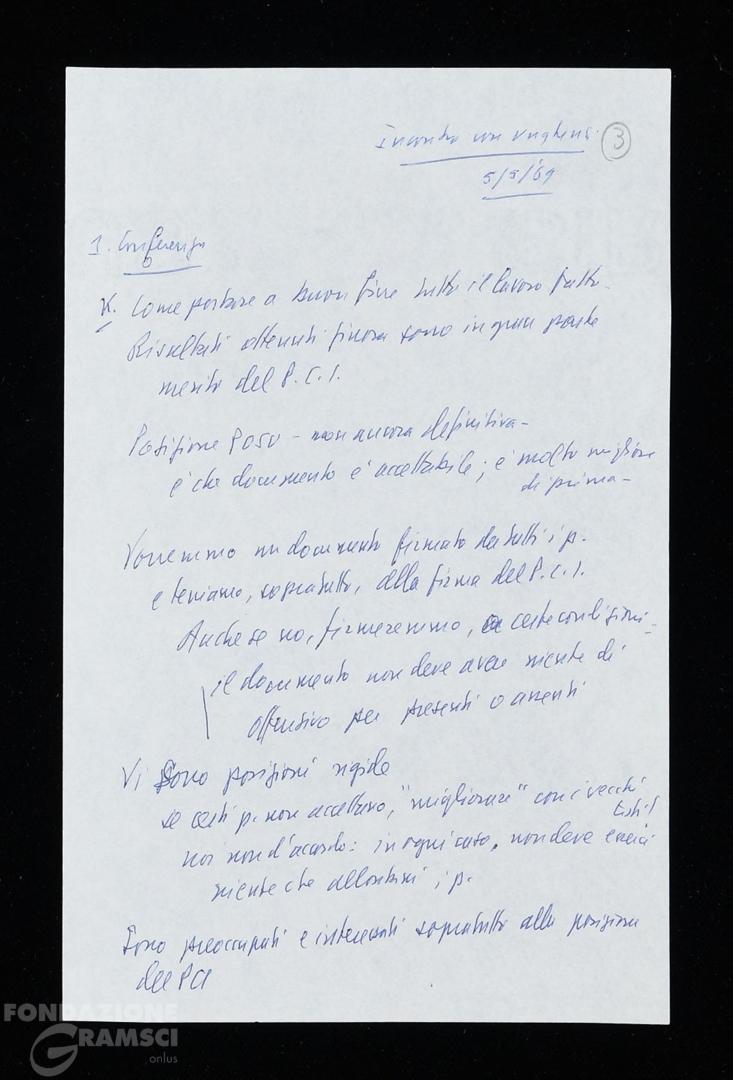 Incontro con ungheresi.
3
5/5/69
1. Conferenza
K. Come portare a buon fine tutto il lavoro fatto.
Risultati ottenuti finora sono in gran parte
merito del P.C.I.
Posizione POSU - non ancora definitiva -
è che documento è accettabile; è molto migliore
di prima -
Vorremmo un documento firmato da tutti i p.
e teniamo, sopratutto, alla firma del P.C.I.
Anche se no, firmeremmo, a certe condizioni -
il documento non deve avere niente di
offensivo per presenti o assenti
Vi sono posizioni rigide
se certi p. non accettano, "migliorare" con i vecchi
testi!
noi non d'accordo: in ogni caso, non deve esserci
niente che allontani i p.
Sono preoccupati e interessati sopratutto alla posizione
del PCI
FONDAZIONE
GRAMSCI
onlus